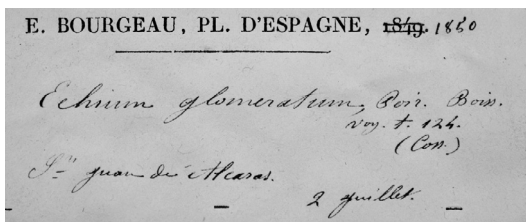 E. BOURGEAU, PL. D'ESPAGNE, 1849. 1850
Echium glomeratum, Poir. Boiss.
voy. t. 124.
(Coss.)
Sn juan de Alcaras.
2 juillet.